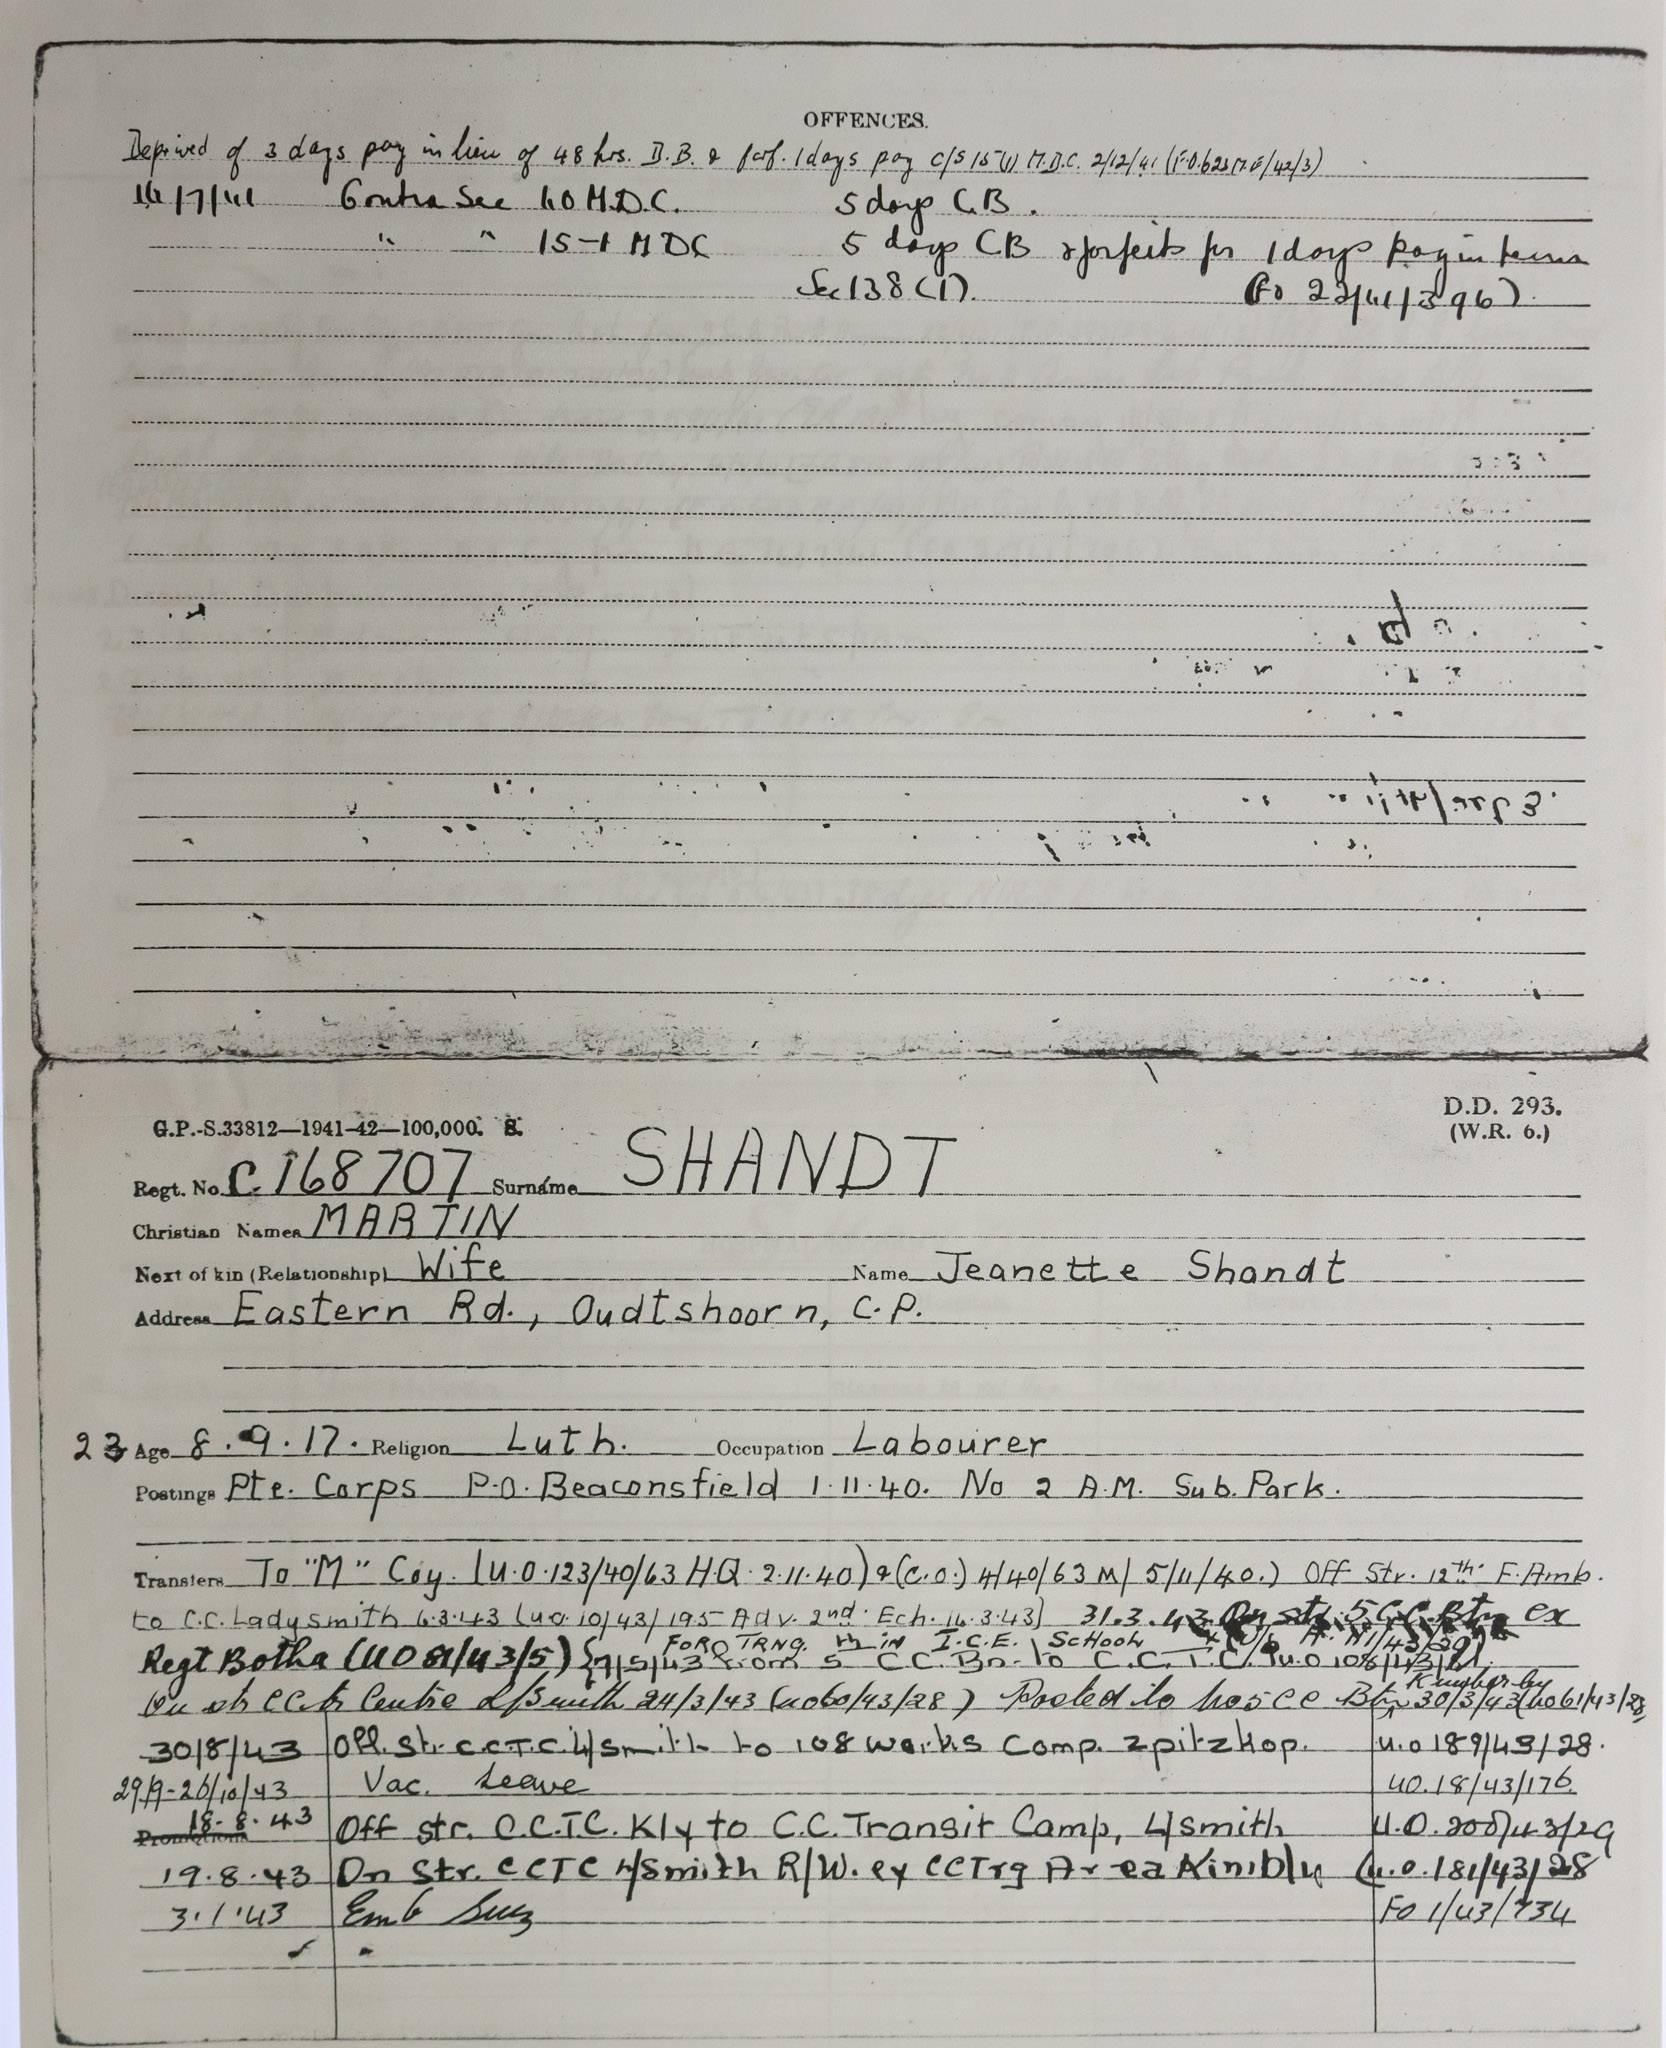 OFFENCES.
Deprived of 3 days pay in lieu of 48 hrs. D.B. & forf. 1 days pay c/s 15(1) M.D.C. 2/12/41 (F.O.623 M.E/42/3)
16/7/41 Contra Sec 40 M.D.C. 5 days C.B.
" " 15-1 MDC 5 days CB & forfeits for 1 days pay in terms
Sec 138 (1). (Fo 22/41/396)
G.P.-S.33812—1941-42—100,000. S.
D.D. 293.
(W.R. 6.)
Regt. No. C.168707 Surname SHANDT
Christian Names MARTIN
Next of kin (Relationship) Wife Name Jeanette Shandt
Address Eastern Rd., Oudtshoorn, C.P.
23 Age 8.9.17. Religion Luth. Occupation Labourer
Postings Pte. Corps P.O. Beaconsfield 1.11.40. No 2 A.M. Sub. Park.
Transfers To "M" Coy. (U.O.123/40/63 H.Q. 2.11.40) & (C.O.) 4/40/63 M/ 5/11/40.) Off Str. 12th F. Amb.
to C.C. Ladysmith 6.3.43 (U.O. 10/43/195 Adv. 2nd Ech. 16.3.43) 31.3.43 On str. 5 C.C. Btn ex
FOR TRNG. IN I.C.E. SCHOOL
Regt Botha (UO 81/43/5) {7/5/43 from 5 C.C. Bn. to C.C.T.C.
Kimberley
On str CC Centre L/Smith 24/3/43 (uo60/43/28) Posted to no 5 CC Btn 30/3/43 (uo61/43/28)
30/8/43 Off. str. C.C.T.C. L/smith to 108 Works Comp. Zpitzkop. U.o 189/43/28.
29/9-26/10/43 Vac. Leave UO.18/43/176.
Promotions 18.8.43 Off str. C.C.T.C. Kly to C.C. Transit Camp, L/smith U.O.200/43/29
19.8.43 On Str. CCTC L/Smith R/W. ex CCTrg Area Kimbly (u.o.181/43/28
3.1.43 Emb Suez FO 1/43/734